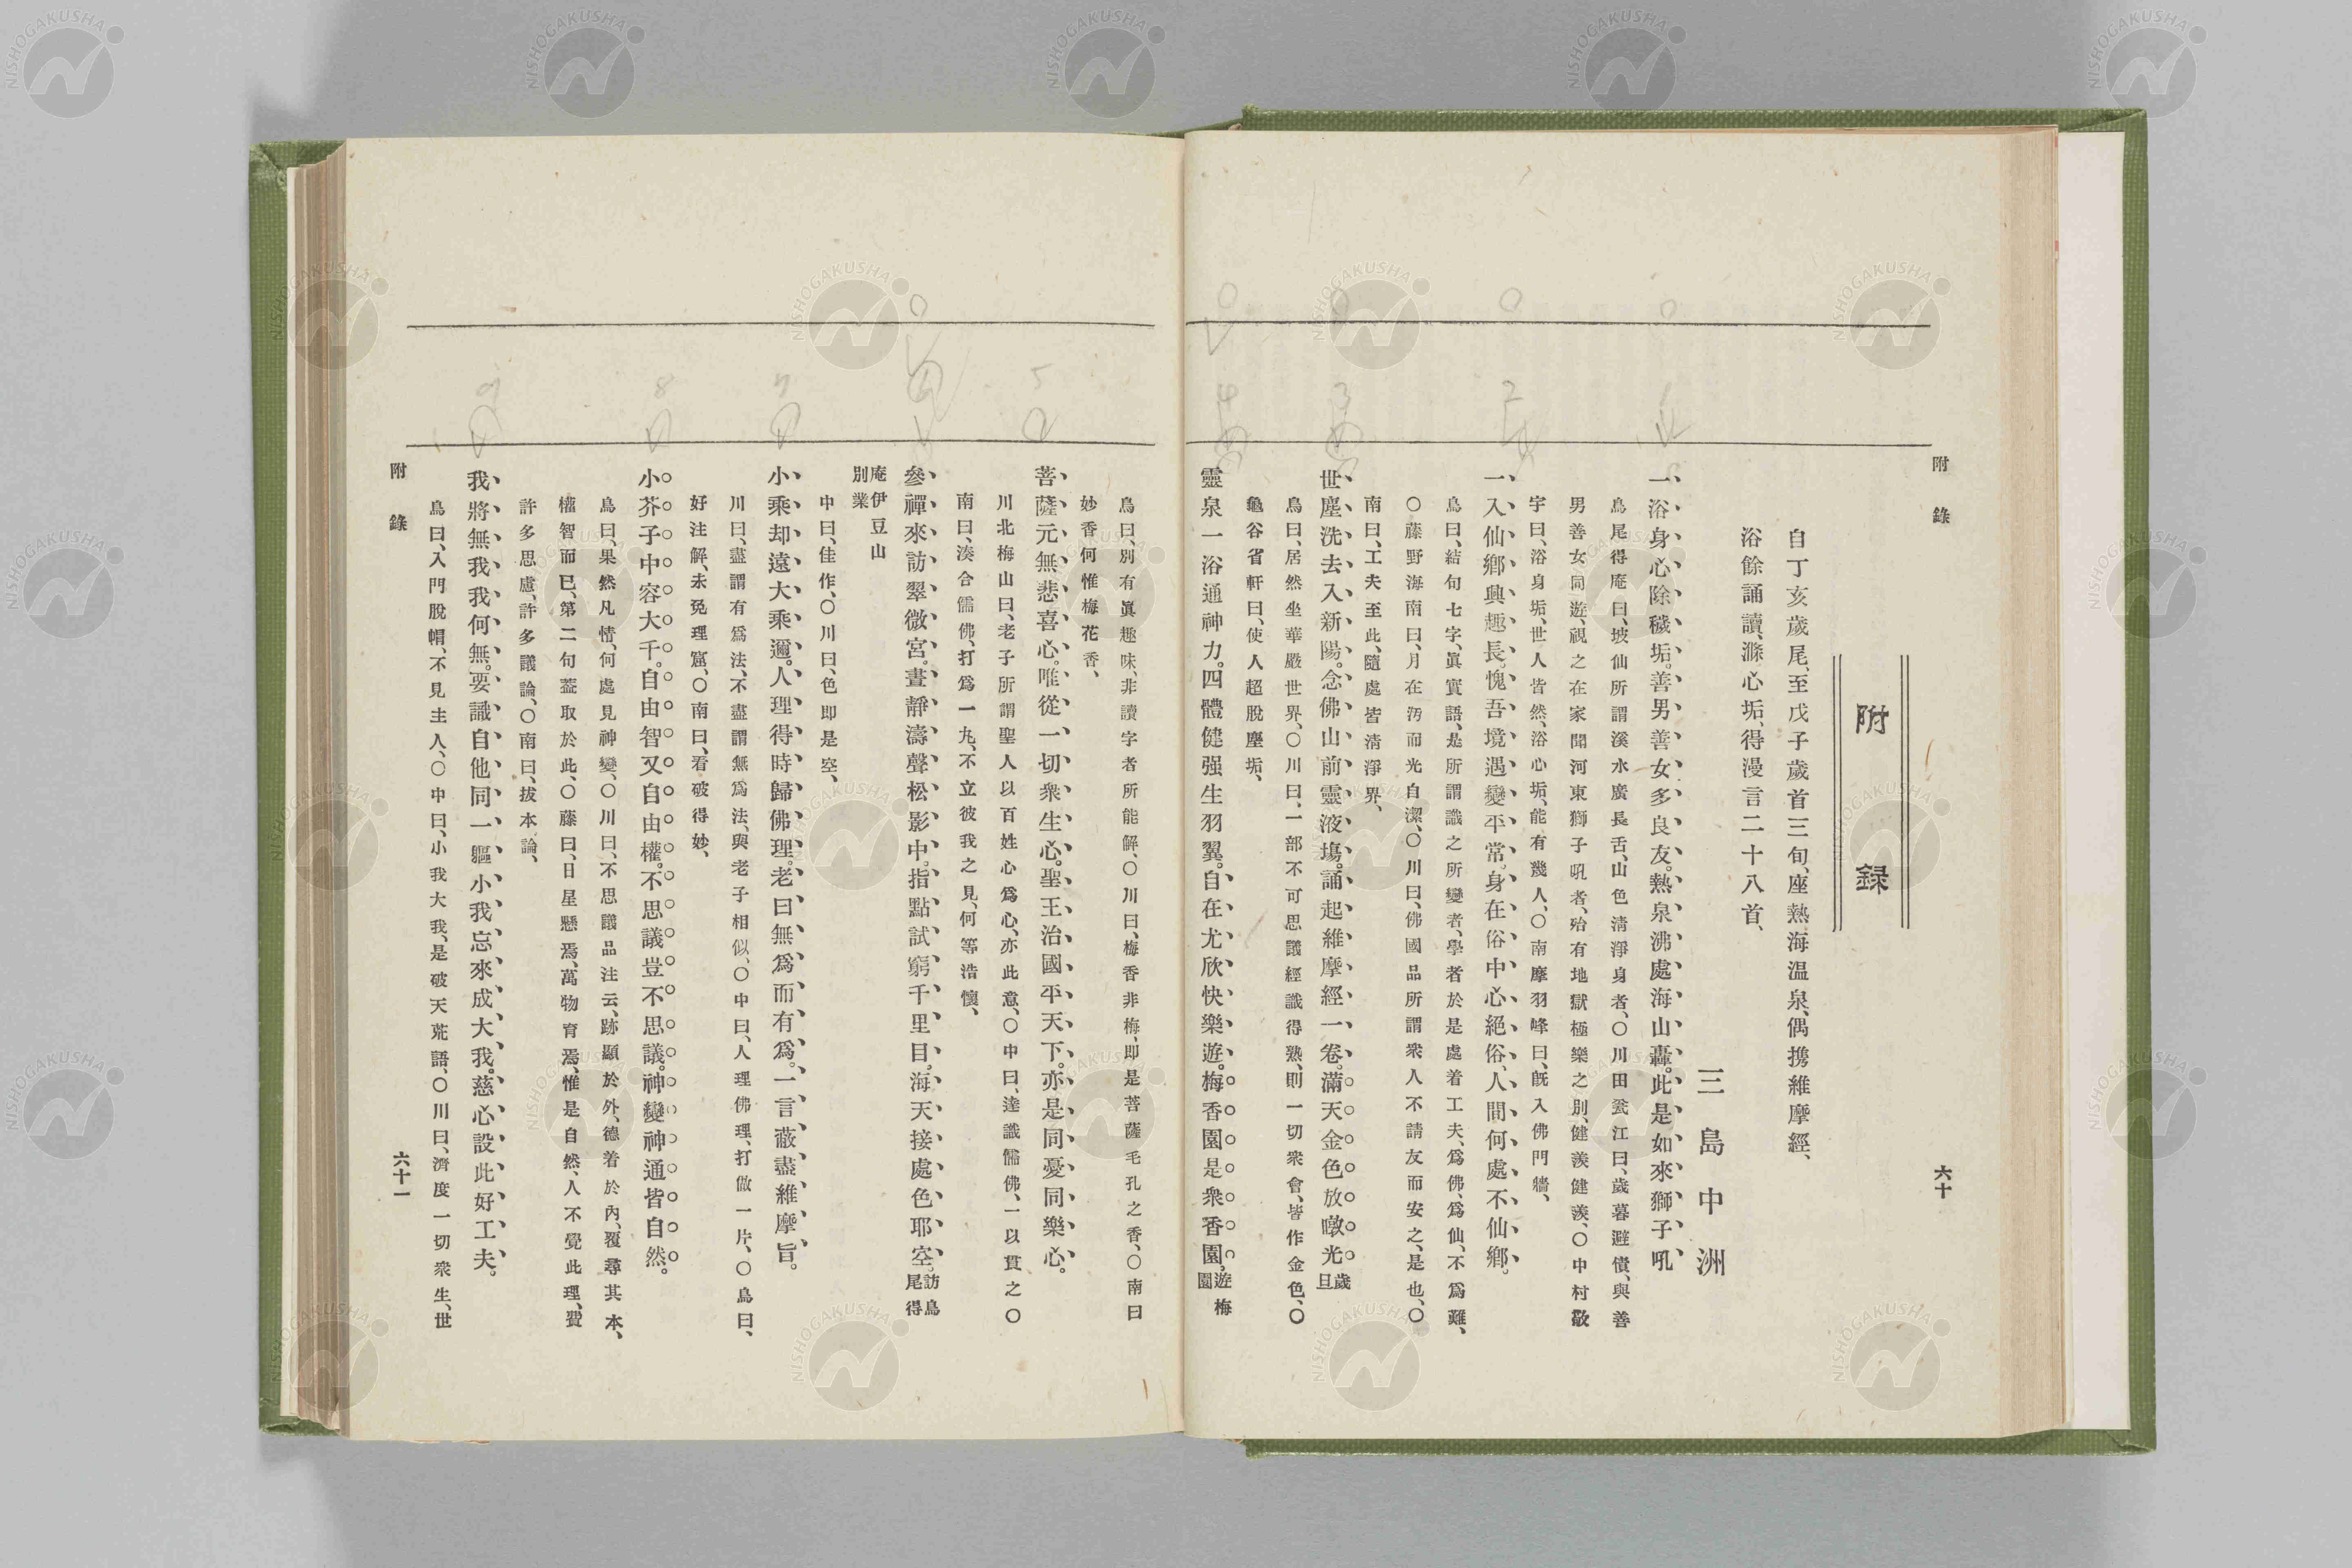 附錄
六十
附錄
自丁亥歲尾、至戊子歲首三旬、座熱海温泉、偶携維摩經、
浴餘誦讀、滌心垢、得漫言二十八首、
三島中洲
一浴身心除穢垢。善男善女多良友。熱泉沸處海山轟。此是如來獅子吼
鳥尾得庵曰、坡仙所謂溪水廣長舌、山色清淨身者、○川田甕江曰、歲暮避債、與善
男善女同遊、視之在家聞河東獅子吼者、殆有地獄極樂之別、健羨健羨、○中村敬
宇曰、浴身垢、世人皆然、浴心垢、能有幾人、○南摩羽峰曰、既入佛門牆、
一入仙鄉興趣長。愧吾境遇變平常。身在俗中心絕俗、人間何處不仙鄉。
鳥曰、結句七字、眞實語、是所謂識之所變者、學者於是處着工夫、爲佛、爲仙、不爲難、
○藤野海南曰、月在汚而光自潔、○川曰、佛國品所謂衆人不請友而安之、是也、○
南曰、工夫至此、隨處皆清淨界、
世塵洗去入新陽。念佛山前靈液塲。誦起維摩經一卷。滿天金色放暾光 歲旦
鳥曰、居然坐華嚴世界、○川曰、一部不可思議經識得熟、則一切衆會、皆作金色、○
龜谷省軒曰、使人超脫塵垢、
靈泉一浴通神力。四體健强生羽翼。自在尤欣快樂遊。梅香園是衆香園。 遊梅園
鳥曰、別有眞趣味、非讀字者所能解、○川曰、梅香非梅、即是菩薩毛孔之香、○南曰
妙香何惟梅花香、
菩薩元無悲喜心。唯從一切衆生心。聖王治國平天下。亦是同憂同樂心。
川北梅山曰、老子所謂聖人以百姓心爲心、亦此意、○中曰、達識儒佛、一以貫之○
南曰、湊合儒佛、打爲一丸、不立彼我之見、何等浩懷、
參禪來訪翠微宮。晝靜濤聲松影中。指點試窮千里目。海天接處色耶空。 訪鳥尾得
庵伊豆山別業
中曰、佳作、○川曰、色即是空、
小乘却遠大乘邇。人理得時歸佛理。老曰無爲而有爲。一言蔽盡維摩旨。
川曰、盡謂有爲法、不盡謂無爲法、與老子相似、○中曰、人理佛理、打做一片、○鳥曰、
好注解、未免理窟、○南曰、看破得妙、
小芥子中容大千。自由智又自由權。不思議豈不思議。神變神通皆自然。
鳥曰、果然凡情、何處見神變、○川曰、不思議品注云、跡顯於外、德着於內、覆尋其本、
權智而已、第二句蓋取於此、○藤曰、日星懸焉、萬物育焉、惟是自然、人不覺此理、費
許多思慮、許多議論、○南曰、拔本論、
我將無我我何無。要識自他同一軀。小我忘來成大我。慈心設此好工夫。
鳥曰、入門脫帽、不見主人、○中曰、小我大我、是破天荒語、○川曰、濟度一切衆生、世
附錄
六十一